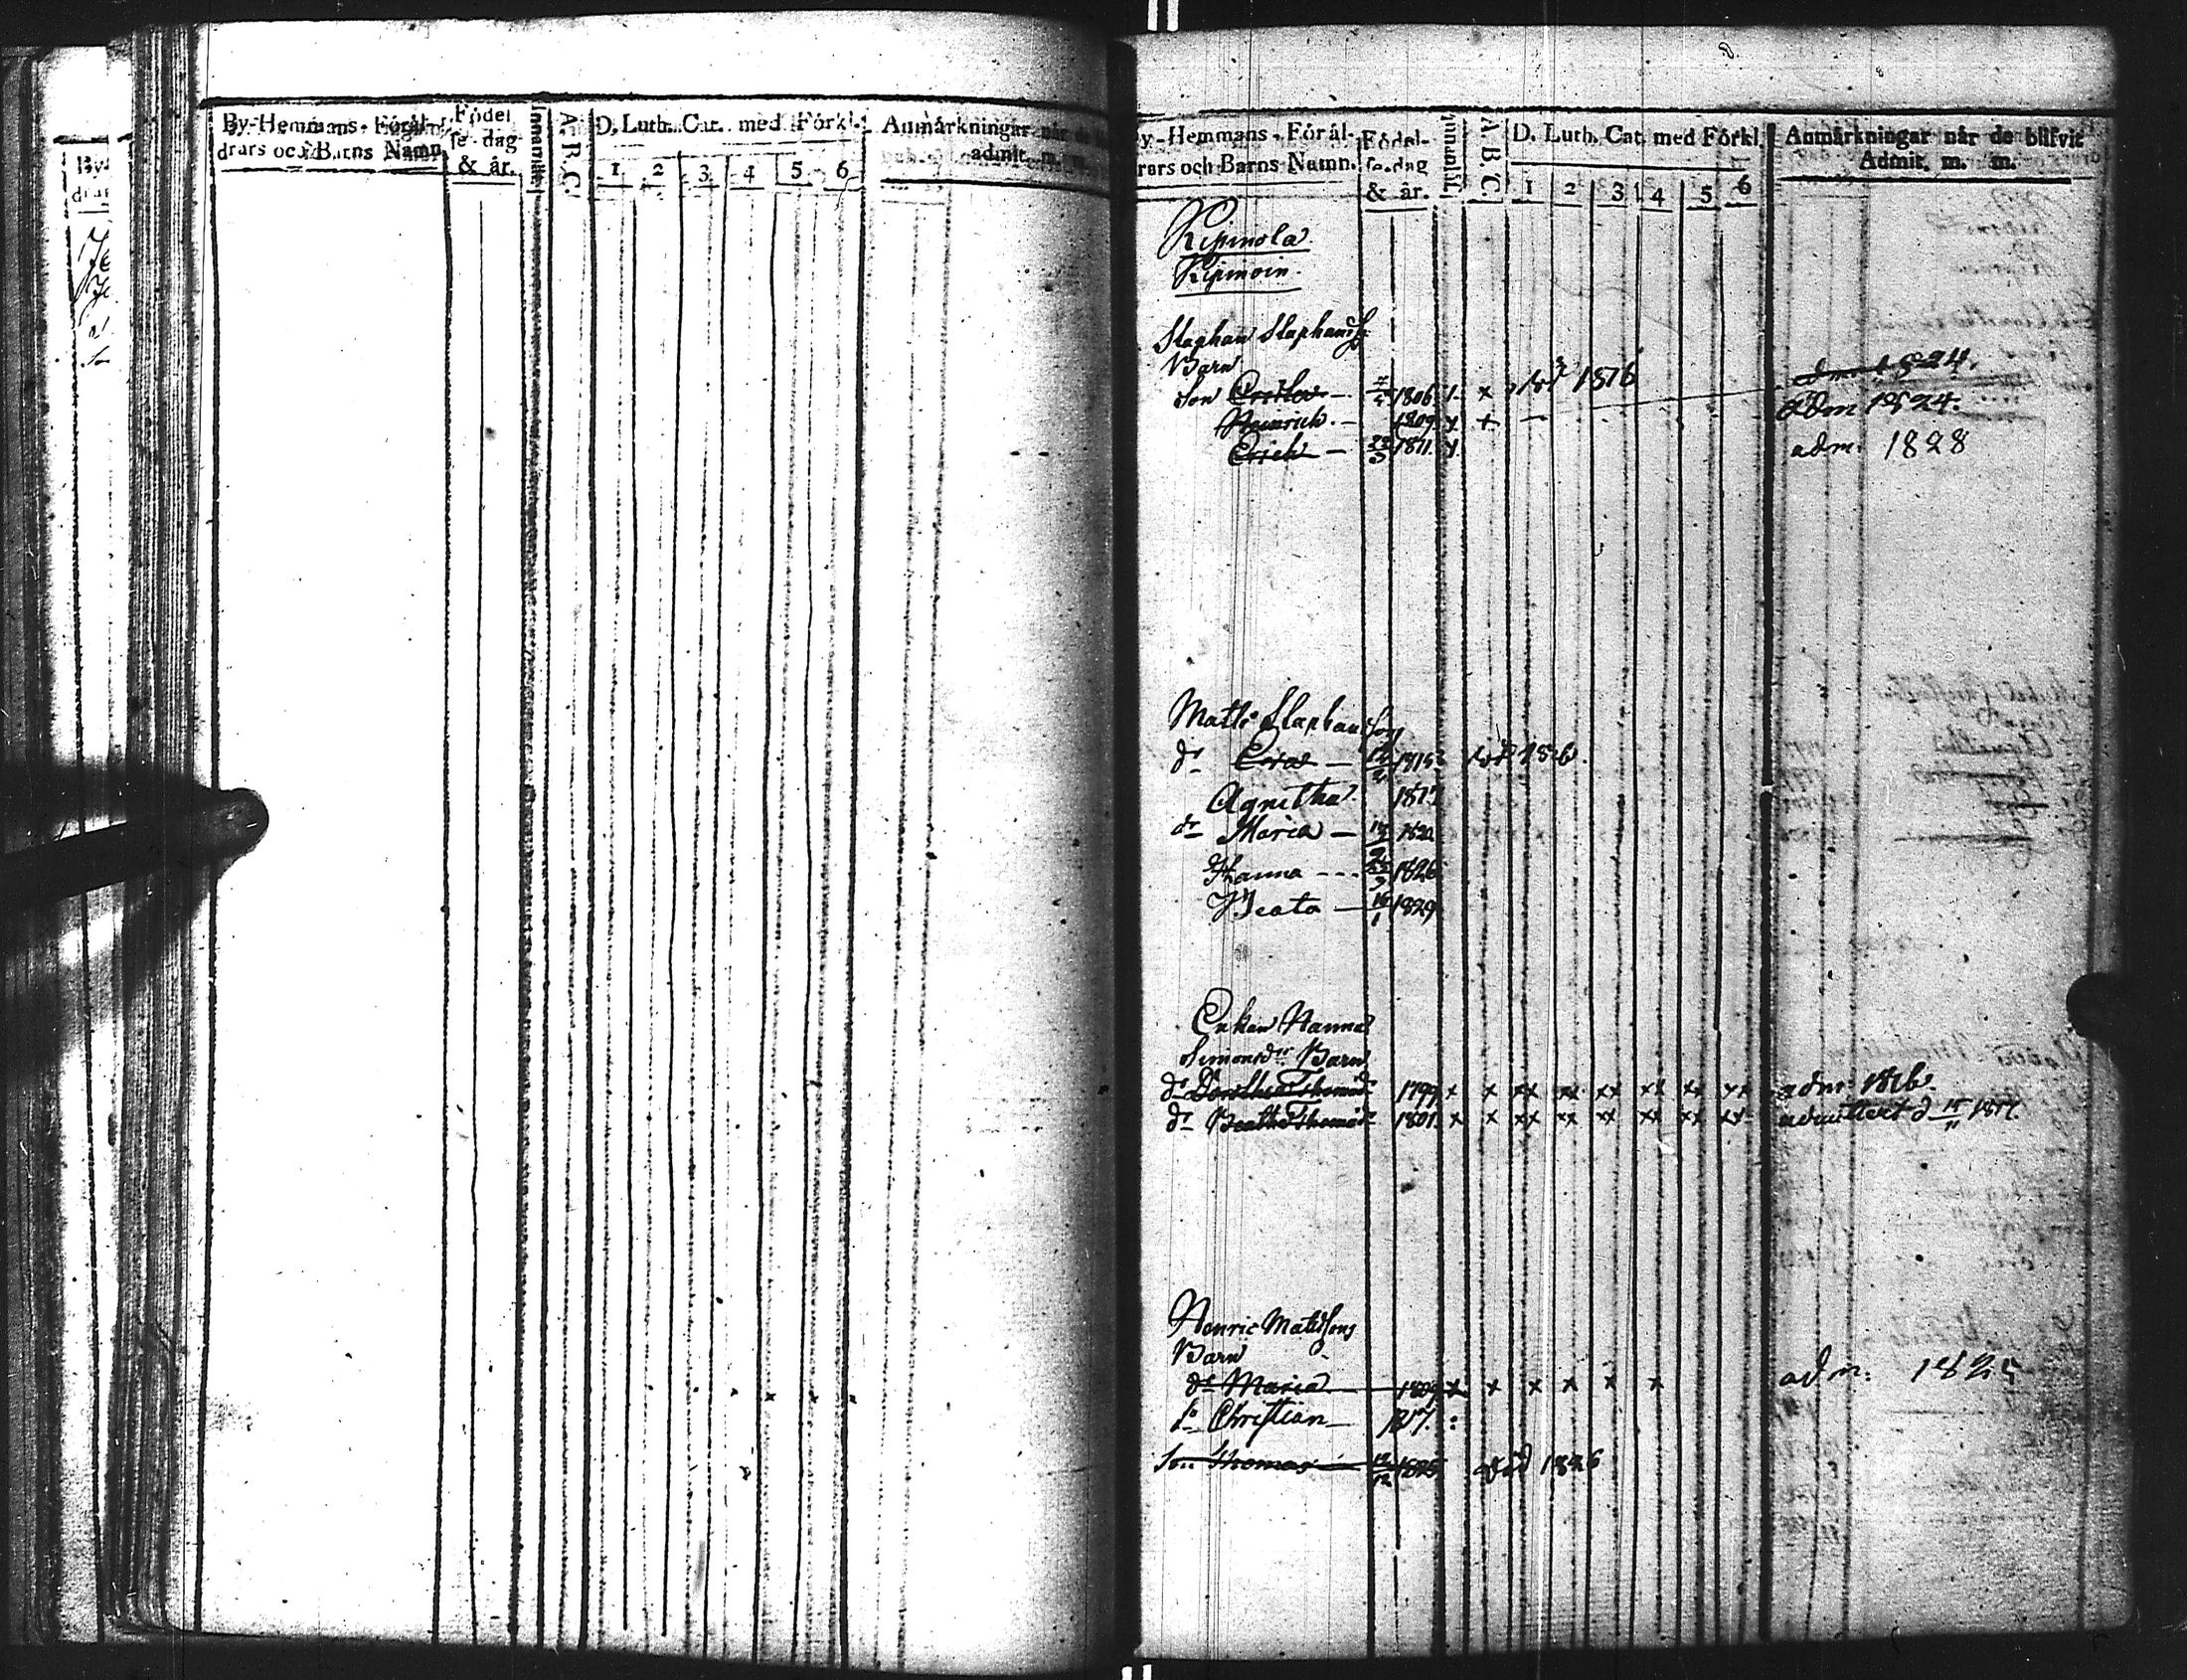 By-Hemmans-Föräl-
drars och Barns Namn
Födel
se-dag
& år.
Innanläs.
A.B.C.
D. Luth. Cat. med Förkl.
1 2 3 4 5 6
Anmärkningar när de
admit. m. m.
By-Hemmans-Föräl-
rars och Barns Namn.
Födel-
se-dag
& år.
Innanl.
A B C.
D. Luth. Cat. med Förkl.
1 2 3 4 5 6
Anmärkningar när de blifvit
Admit. m. m.
Kipinola
Kipinoin
Staphan Staphanss:
Barn
Son 1806 x 1816 adm 1824.
Heinrich. — 1809. y + — adm 1824.
Erich — 23/3 1811. y. adm: 1828
Matts Staphansson
dr — 1815
Agnetha 1817
dr Maria — 1820
Hanna --- 1826
Beata — 16/1 1829
Enkan Hanna
Simonsdr Barn
dr Dorothea Thomasdr 1799 x x xx xx xx xx xx xx adm: 1816.
dr Beatha Thomasdr 1801. x x xx xx xx xx xx xx admittert d 15/11 1817.
Henric Matssons
Barn
dr Maria 1809 x x x x x x adm: 1825
So Christian — 1817. :
Son Thomas — 12/12 1825 död 1826